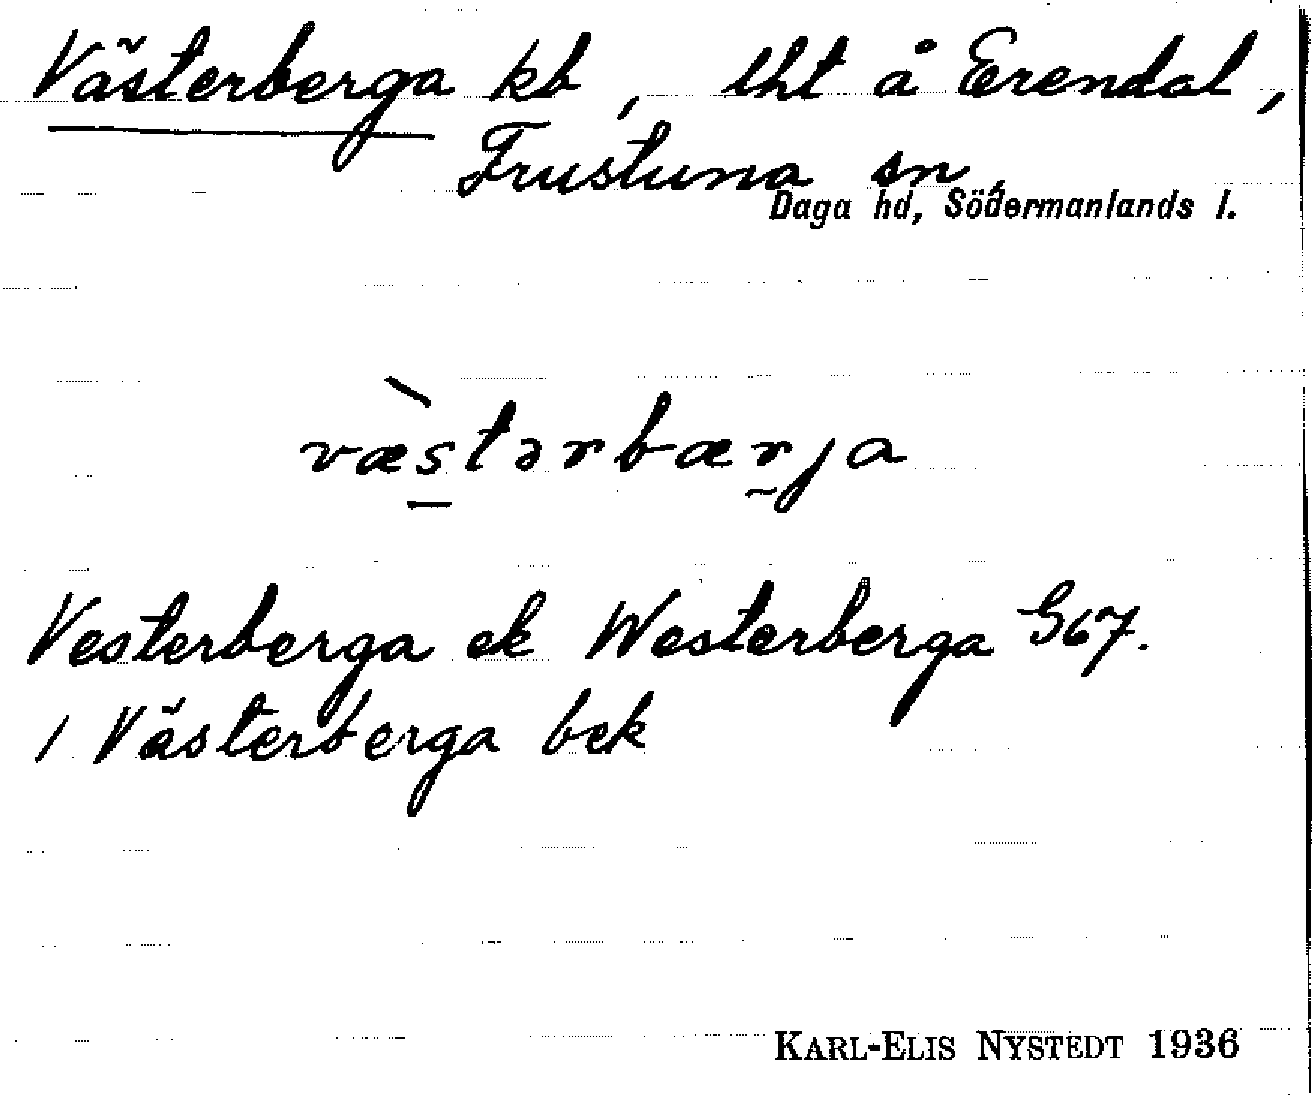 Västerberga kb, lht å Erendal,
Frustuna sn,
Daga hd, Södermanlands l.
væ̀stərbærja
Vesterberga ek Westerberga G67.
/ Västerberga bek
KARL-ELIS NYSTEDT 1936